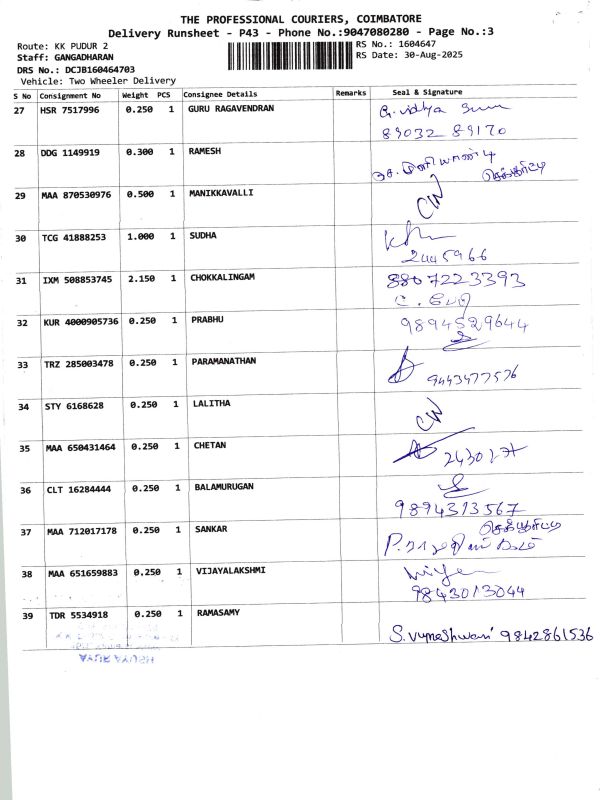 THE PROFESSIONAL COURIERS, COIMBATORE
Delivery Runsheet - P43 - Phone No.:9047080280 - Page No.:3
Route: KK PUDUR 2
Staff: GANGADHARAN
DRS No.: DCJB160464703
Vehicle: Two Wheeler Delivery
RS No.: 1604647
RS Date: 30-Aug-2025
S No Consignment No Weight PCS Consignee Details Remarks Seal & Signature
27 HSR 7517996 0.250 1 GURU RAGAVENDRAN G. vidhya
89032 89170
28 DDG 1149919 0.300 1 RAMESH
செக்யூரிட்டி
29 MAA 870530976 0.500 1 MANIKKAVALLI CW
30 TCG 41888253 1.000 1 SUDHA
2445966
31 IXM 508853745 2.150 1 CHOKKALINGAM 8807223393
32 KUR 4000905736 0.250 1 PRABHU 9894529644
33 TRZ 285003478 0.250 1 PARAMANATHAN 9443477576
34 STY 6168628 0.250 1 LALITHA CW
35 MAA 650431464 0.250 1 CHETAN
36 CLT 16284444 0.250 1 BALAMURUGAN
9894313567
37 MAA 712017178 0.250 1 SANKAR செக்யூரிட்டி
38 MAA 651659883 0.250 1 VIJAYALAKSHMI
9843013044
39 TDR 5534918 0.250 1 RAMASAMY
9842861536